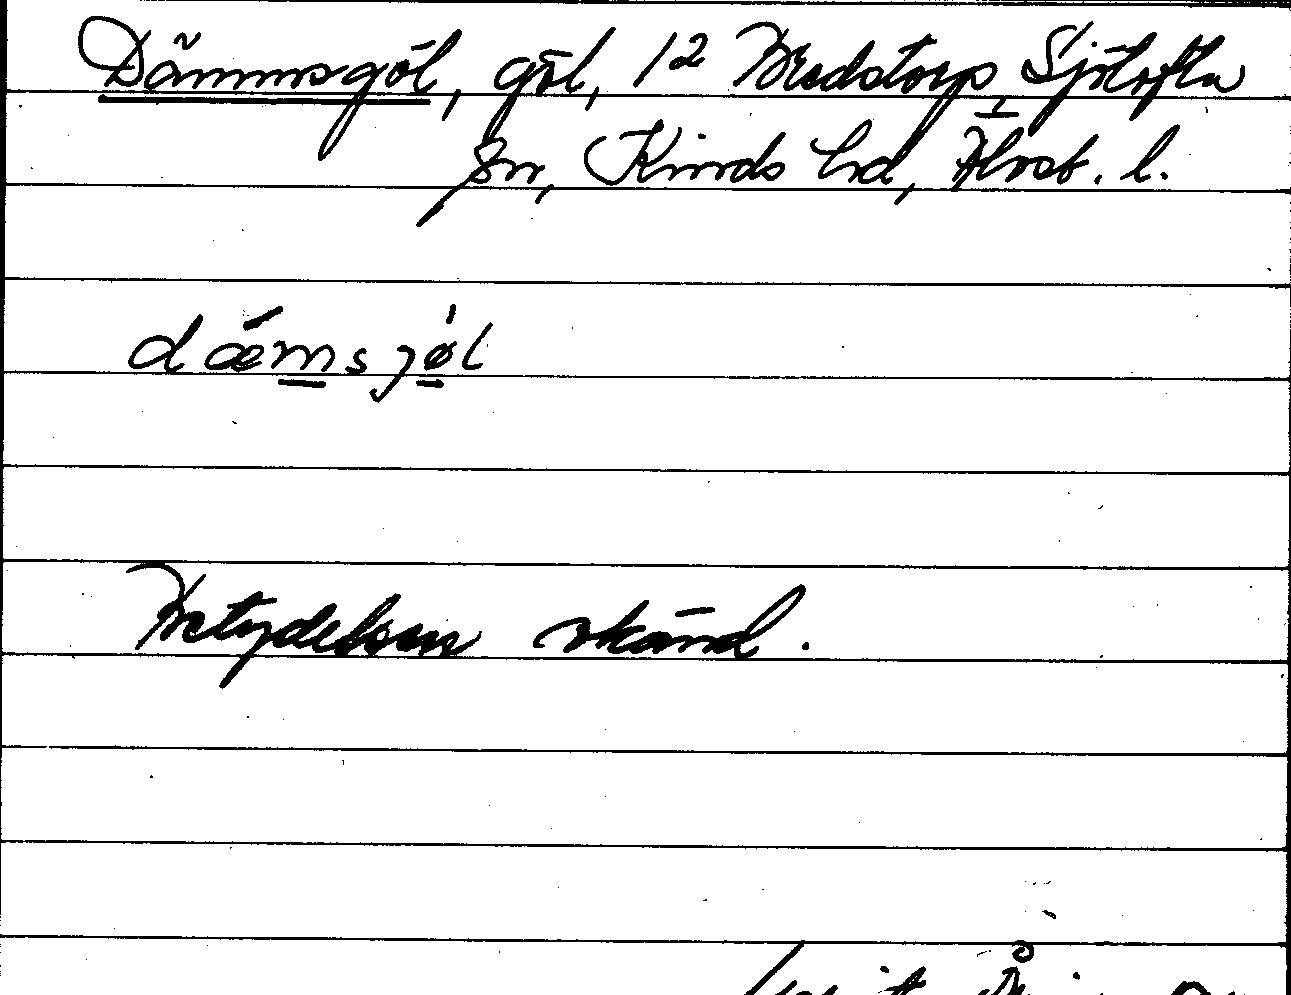 Dämmsgöl, göl, 12 Bredstorp, Sjötofta
sn, Kinds hd, Älvsb. l.
dǽmsjøl
Betydelsen okänd.